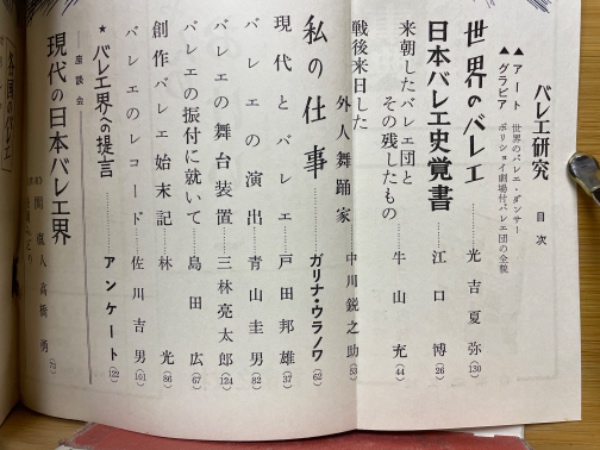 バレエ研究 目次
▲アート 世界のバレエ・ダンサー
▲グラビア ボリショイ劇場付バレエ団の全貌
世界のバレエ………光吉夏弥(130)
日本バレエ史覚書………江口博(26)
来朝したバレエ団と
その残したもの………牛山充(44)
戦後来日した
外人舞踊家 中川鋭之助(53)
私の仕事………ガリナ・ウラノワ(62)
現代とバレエ………戸田邦雄(37)
バレエの演出………青山圭男(82)
バレエの舞台装置………三林亮太郎(124)
バレエの振付に就いて………島田広(67)
創作バレエ始末記………林光(86)
バレエのレコード………佐川吉男(101)
★バレエ界への提言………アンケート(122)
座談会
現代の日本バレエ界
高橋勇
各国のバレエ